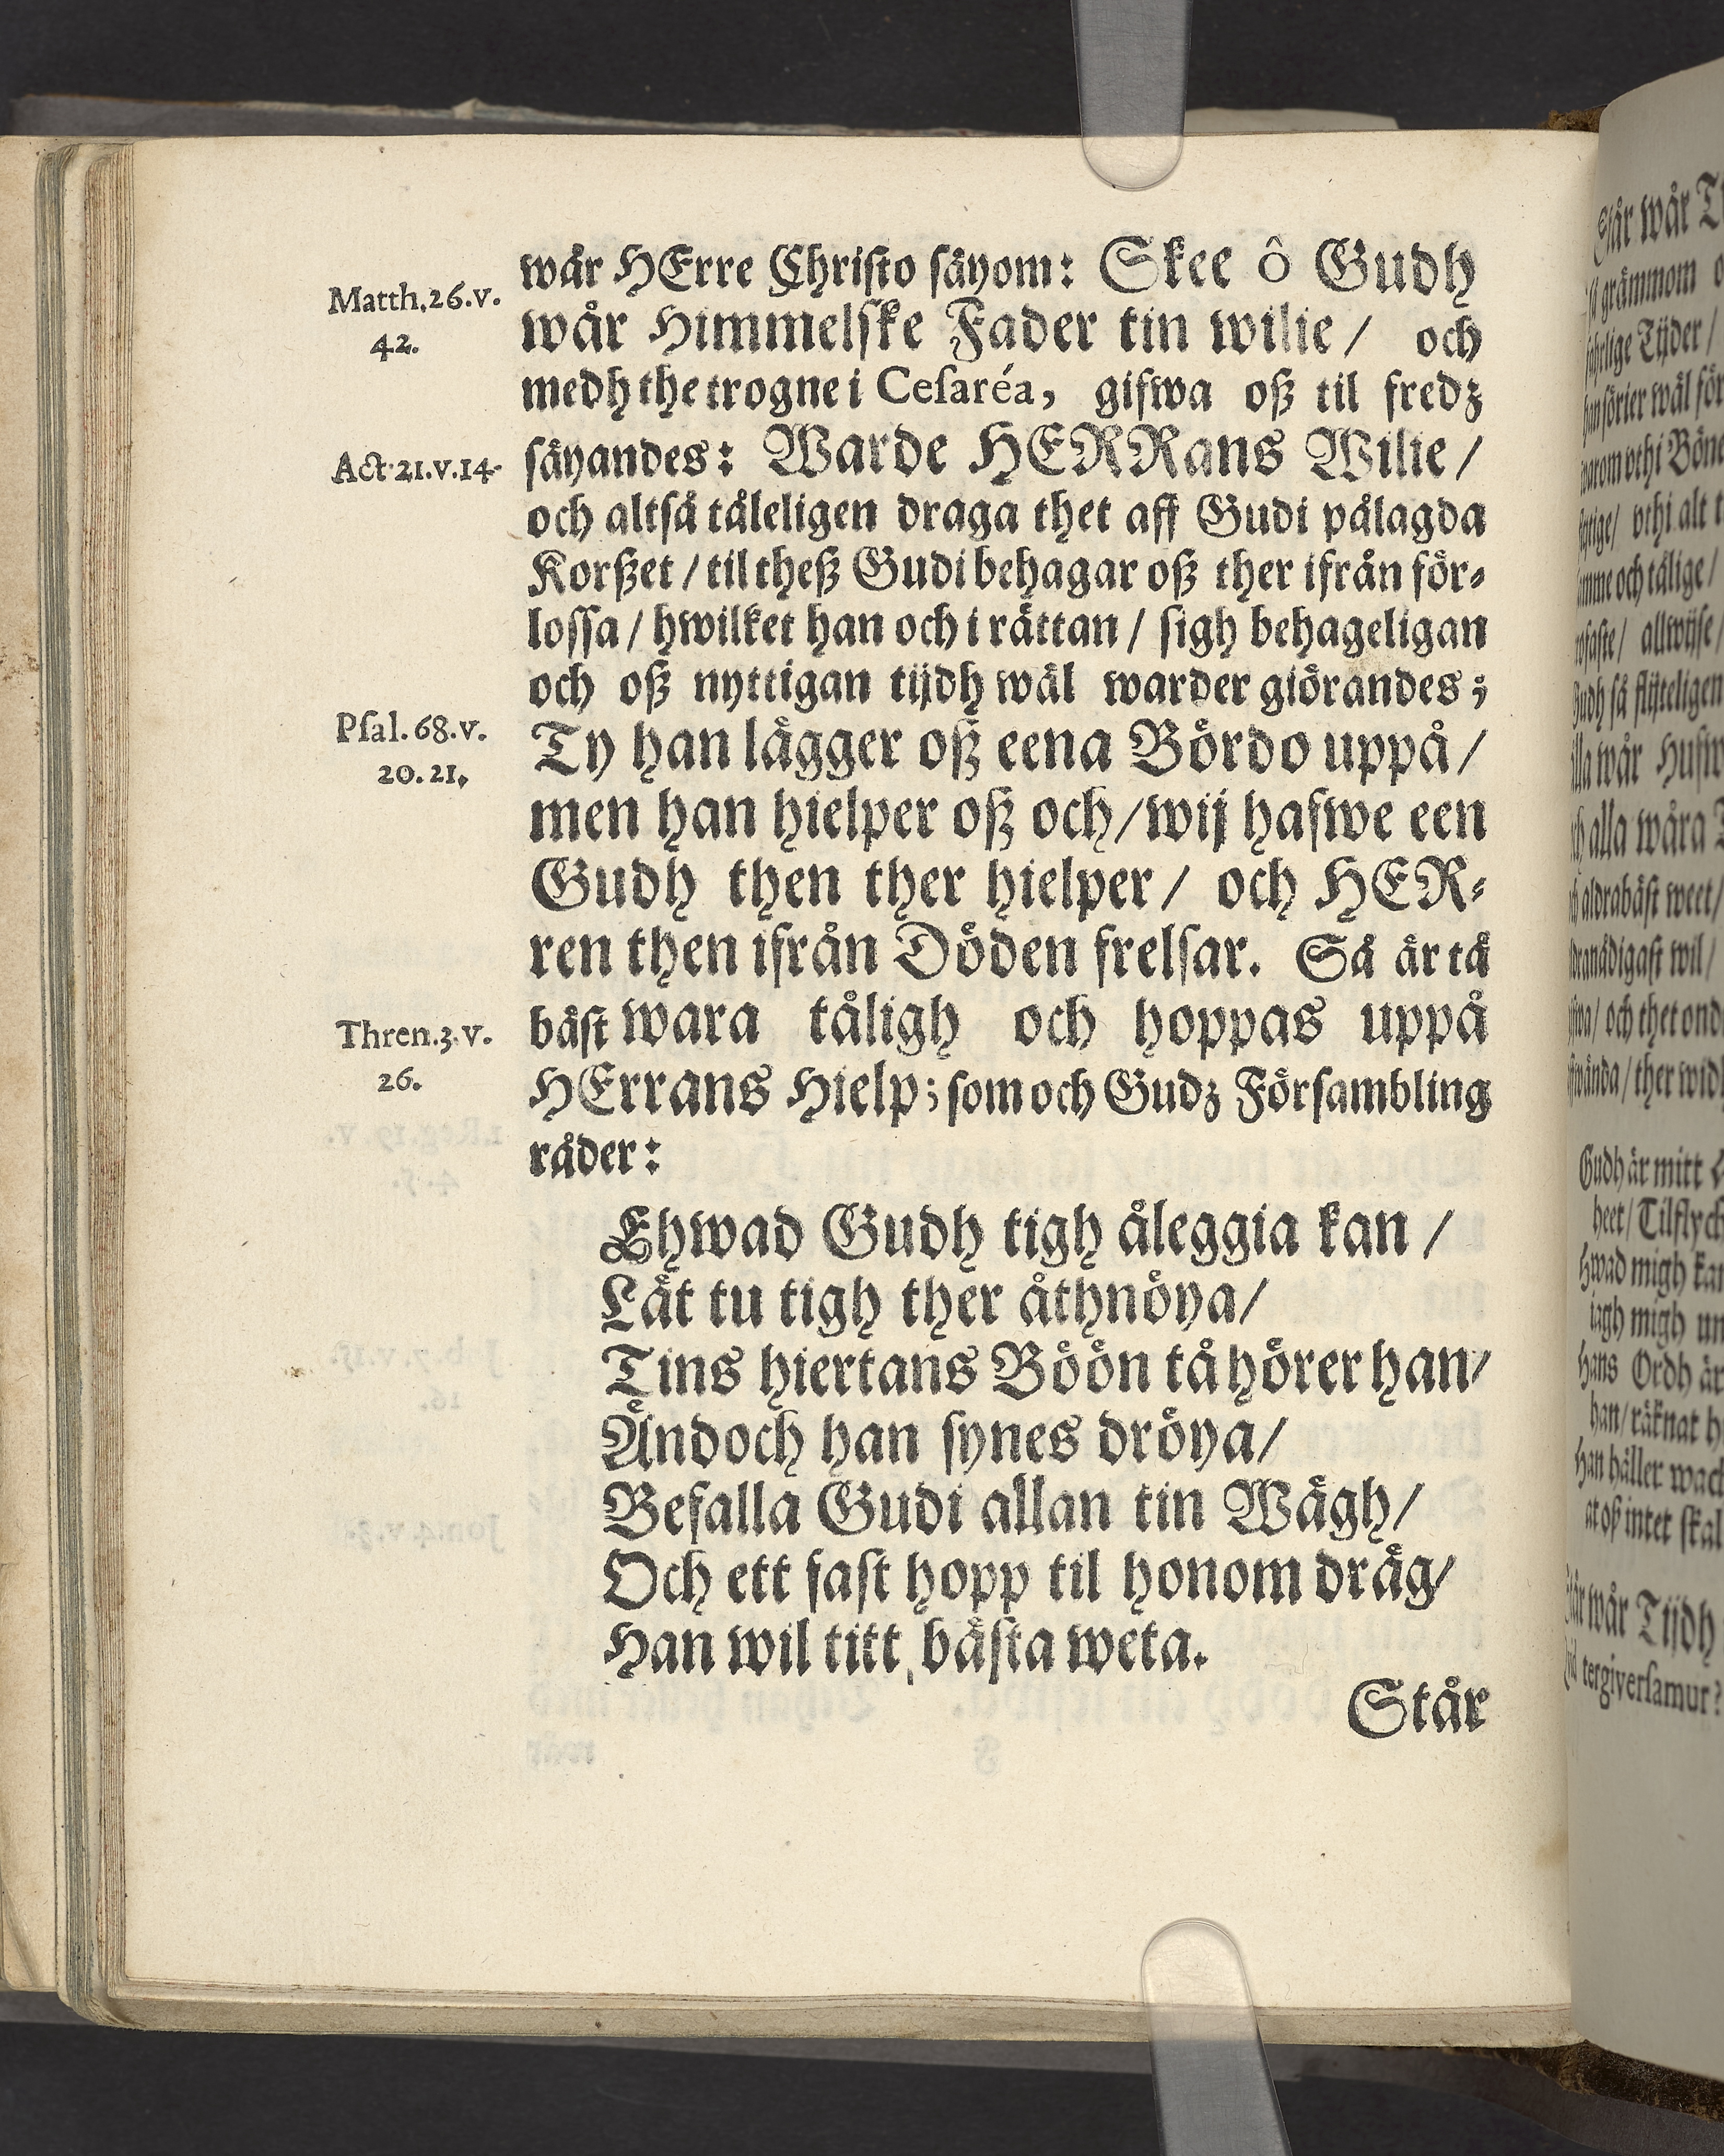 Matth. 26. v.
42.
Act. 21. v. 14.
Psal. 68. v.
20. 21.
Thren. 3. v.
26.
wår HErre Christo säyom: Skee ô Gudh
wår Himmelske Fader tin wilie / och
medh the trogne i Cesaréa, gifwa oß til fredz
säyandes: Warde HERRans Wilie /
och altså tåleligen draga thet aff Gudi pålagda
Korßet / til theß Gudi behagar oß ther ifrån för-
lossa / hwilket han och i rättan / sigh behageligan
och oß nyttigan tijdh wäl warder giörandes;
Ty han lägger oß eena Bördo uppå /
men han hielper oß och / wij hafwe een
Gudh then ther hielper / och HER-
ren then ifrån Döden frelsar. Så är tå
bäst wara tåligh och hoppas uppå
HErrans Hielp; som och Gudz Försambling
råder:
Ehwad Gudh tigh åleggia kan /
Låt tu tigh ther åthnöya /
Tins hiertans Böön tå hörer han /
Ändoch han synes dröya /
Befalla Gudi allan tin Wägh /
Och ett fast hopp til honom dräg /
Han wil titt bästa weta.
Står